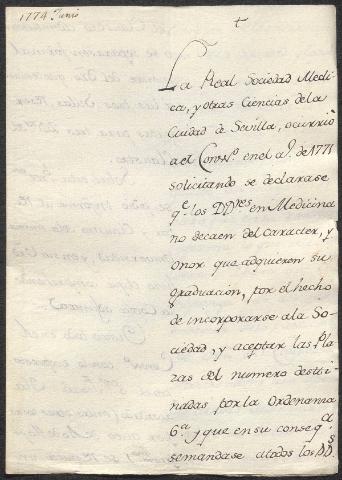 1774 Junio
+
La Real Sociedad Medi
ca, y otras Ciencias de la
Ciudad de Sevilla, ocurrió
a el Cons.º en el a.º de 1771
solicitando se declarase
q.e los DD.res en Medicina
no decaen del caracter, y
onor que adquieren su
graduación, por el hecho
de incorporarse a la So
ciedad, y aceptar las Pla
zas del numero desti
nadas por la Ordenanza
6.a y que en su conseq.a
se mandase a todos los DD.s